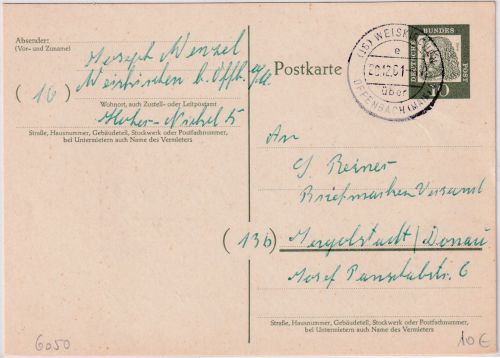 Absender:
(Vor- und Zuname)
Joseph Wenzel
Weiskirchen b. Offb. a/M.
(16)
Wohnort, auch Zustell- oder Leitpostamt
5
Straße, Hausnummer, Gebäudeteil, Stockwerk oder Postfachnummer,
bei Untermietern auch Name des Vermieters
Postkarte
(16) WEISKIRCHEN
e
12.61
über
OFFENBACH (MAIN)
DEUTSCHE BUNDESPOST
10
An
Reiner
Briefmarken-Versand
(13b) Ingolstadt/Donau
Josef 6
Straße, Hausnummer, Gebäudeteil, Stockwerk oder Postfachnummer,
bei Untermietern auch Name des Vermieters
6050
10 €